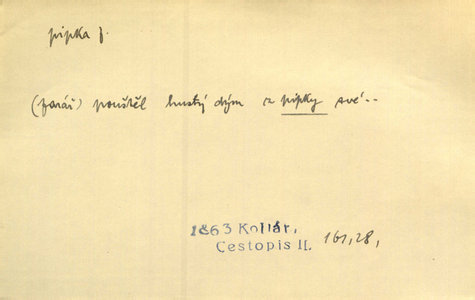 pipka f.
(farář) pouštěl hustý dým z pipky své..
1863 Kollár,
Cestopis II. 161,28,